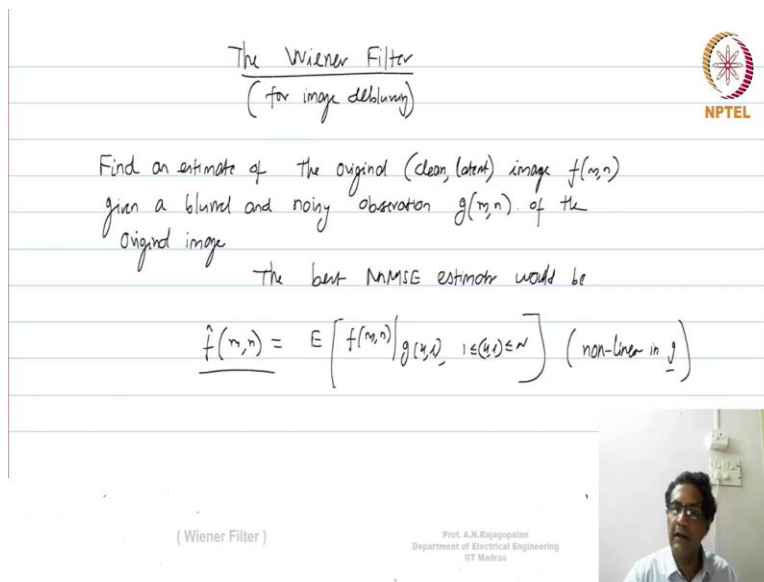 The Wiener Filter
(for image deblurring)
NPTEL
Find an estimate of the original (clean, latent) image f(m,n)
given a blurred and noisy observation g(m,n) of the
original image
The best MMSE estimate would be
f̂(m,n) = E [ f(m,n) | g(k,l), 1≤(k,l)≤N ] (non-linear in g)
( Wiener Filter )
Prof. A.N.Rajagopalan
Department of Electrical Engineering
IIT Madras